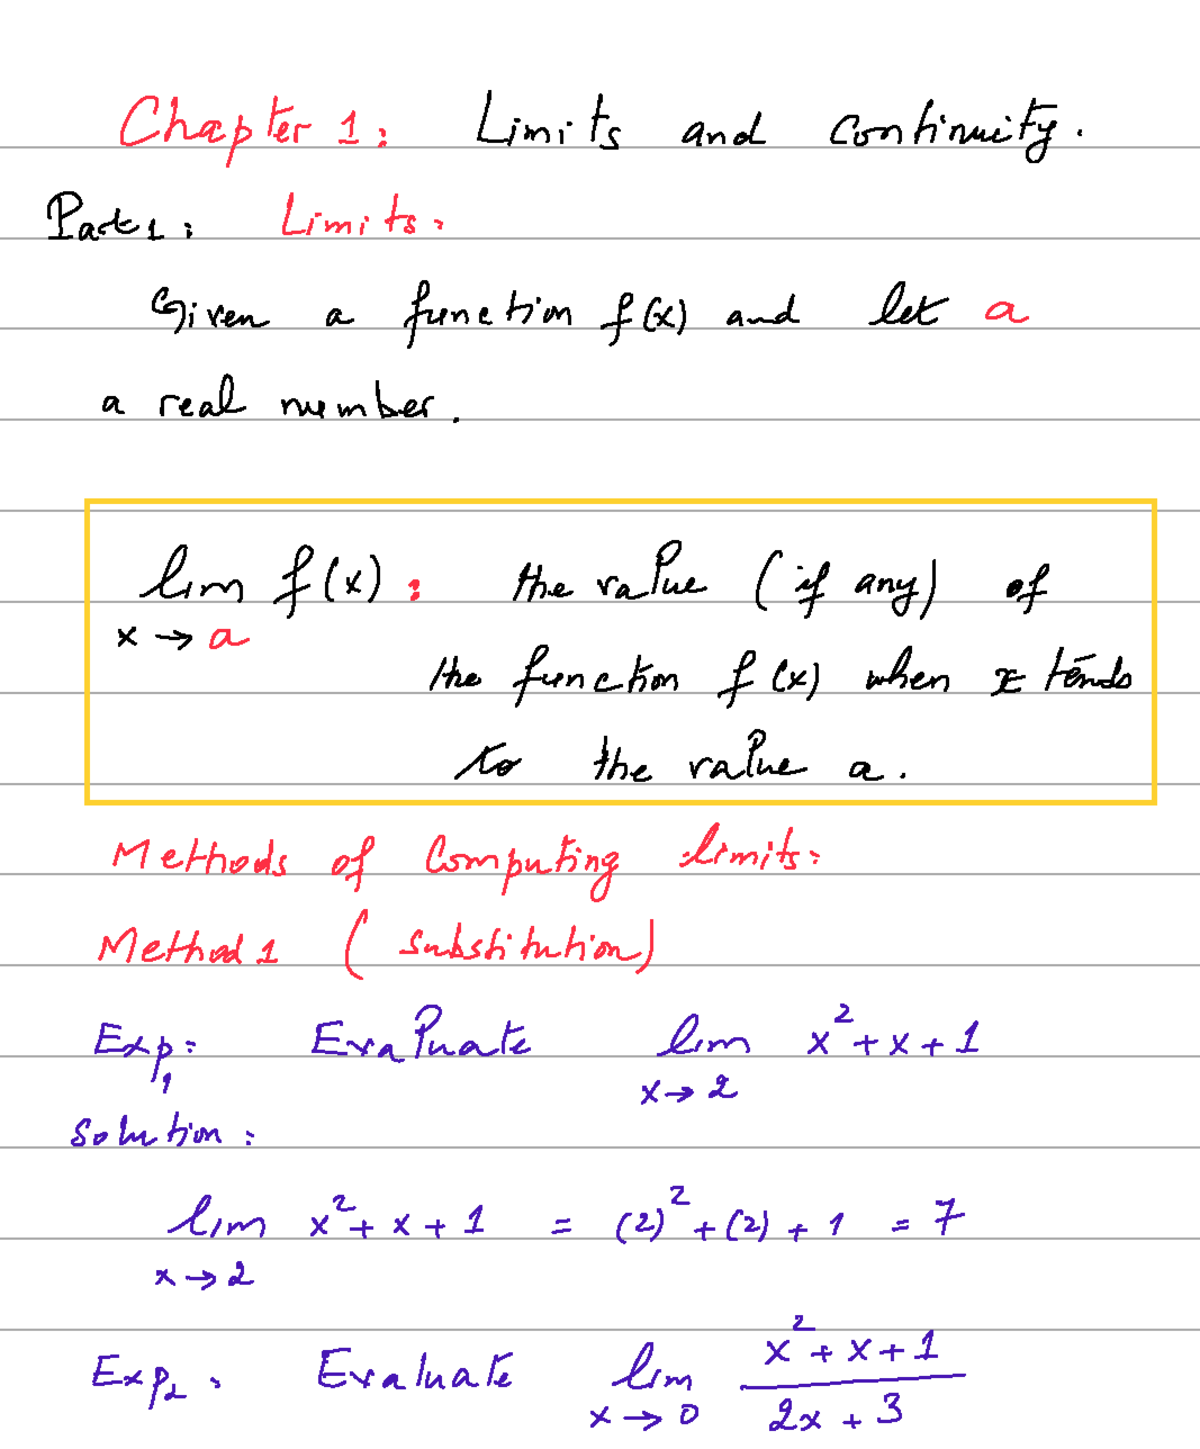 Chapter 1: Limits and Continuity.
Part 1: Limits:
Given a function f(x) and let a
a real number.
lim f(x): the value (if any) of
x → a
the function f(x) when x tends
to the value a.
Methods of Computing limits:
Method 1 (substitution)
Exp1: Evaluate lim x² + x + 1
x → 2
Solution:
lim x² + x + 1 = (2)² + (2) + 1 = 7
x → 2
Exp2: Evaluate lim x² + x + 1
x → 0 2x + 3